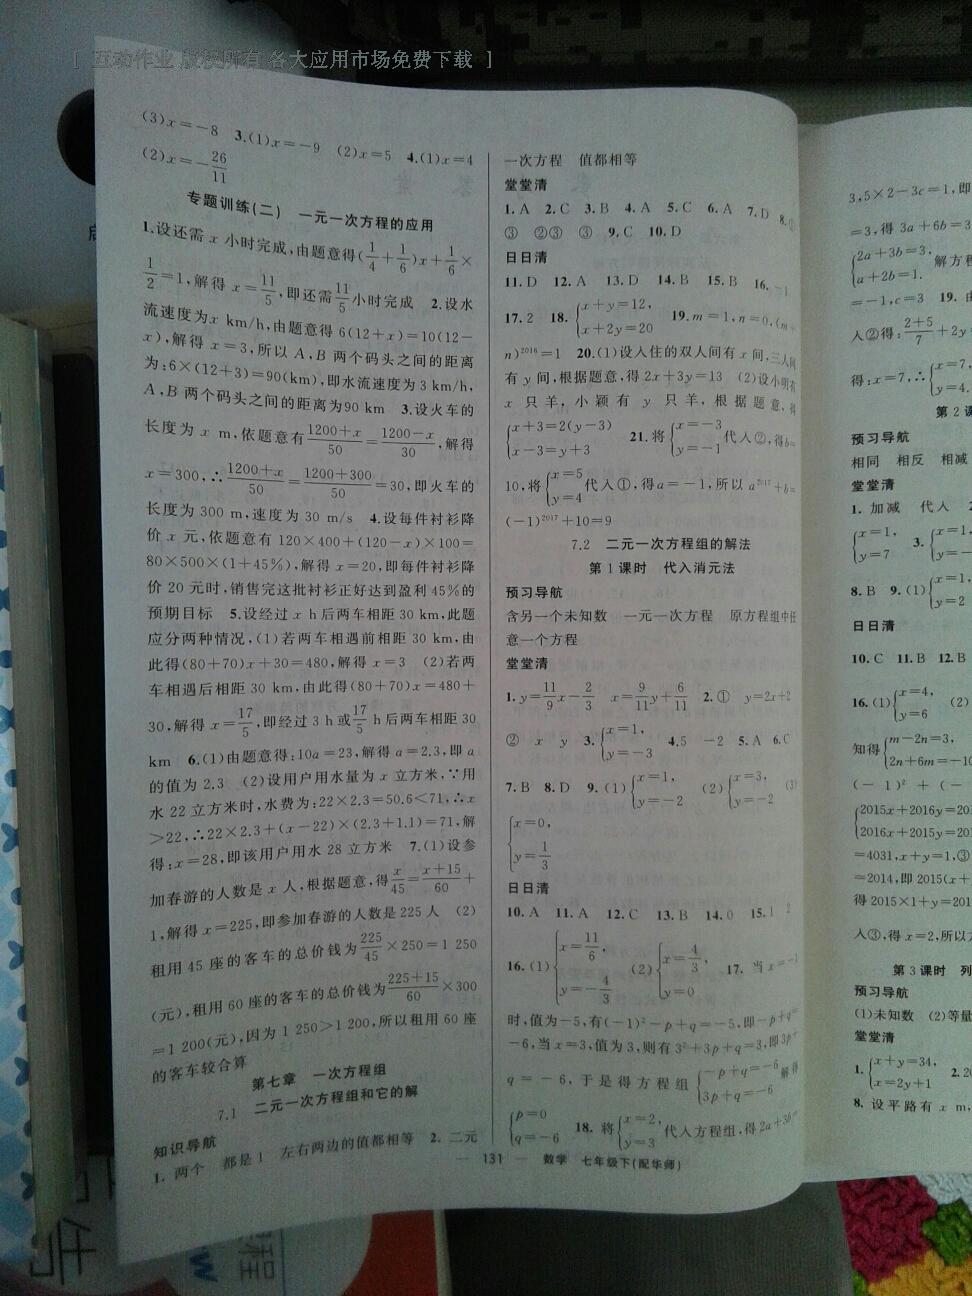 [ 互动作业 版权所有 各大应用市场免费下载 ]
(3)x=-8 3.(1)x=-9 (2)x=5 4.(1)x=4
(2)x=-26/11
专题训练(二) 一元一次方程的应用
1.设还需 x 小时完成,由题意得(1/4+1/6)x+1/6×
1/2=1,解得 x=11/5,即还需11/5小时完成 2.设水
流速度为x km/h,由题意得 6(12+x)=10(12-
x),解得 x=3,所以 A,B 两个码头之间的距离
为:6×(12+3)=90(km),即水流速度为 3 km/h,
A,B 两个码头之间的距离为90 km 3.设火车的
长度为 x m,依题意有(1200+x)/50=(1200-x)/30,解得
x=300,∴(1200+x)/50=(1200+300)/50=30,即火车的
长度为 300 m,速度为 30 m/s 4.设每件衬衫降
价 x 元,依题意有 120×400+(120-x)×100=
80×500×(1+45%),解得 x=20,即每件衬衫降
价 20 元时,销售完这批衬衫正好达到盈利 45%的
预期目标 5.设经过 x h 后两车相距 30 km,此题
应分两种情况,(1)若两车相遇前相距 30 km,由
此得(80+70)x+30=480,解得 x=3 (2)若两
车相遇后相距 30 km,由此得(80+70)x=480+
30,解得 x=17/5,即经过 3 h 或17/5 h 后两车相距 30
km 6.(1)由题意得:10a=23,解得 a=2.3,即 a
的值为 2.3 (2)设用户用水量为 x 立方米,∵用
水 22 立方米时,水费为:22×2.3=50.6<71,∴x
>22,∴22×2.3+(x-22)×(2.3+1.1)=71,解
得:x=28,即该用户用水 28 立方米 7.(1)设参
加春游的人数是 x 人,根据题意,得x/45=(x+15)/60+
1,解得 x=225,即参加春游的人数是 225 人 (2)
租用 45 座的客车的总价钱为225/45×250=1 250
(元),租用 60 座的客车的总价钱为(225+15)/60×300
=1 200(元),因为 1 250>1 200,所以租用 60 座
的客车较合算
第七章 一次方程组
7.1 二元一次方程组和它的解
知识导航
1. 两个 都是 1 左右两边的值都相等 2. 二元
一次方程 值都相等
堂堂清
1. A 2. C 3. B 4. A 5. C 6. A 7. D 8.①
③ ②③ ③ 9. C 10. D
日日清
11. D 12. A 13. D 14. B 15. B 16. -1
17. 2 18. {x+y=12, x+2y=20 19. m=1,n=0,(m+
n)²⁰¹⁶=1 20.(1)设入住的双人间有 x 间,三人间
有 y 间,根据题意,得 2x+3y=13 (2)设小明有
x 只羊,小颖有 y 只羊,根据题意,得
{x+3=2(y-3) x-3=y+3 21. 将 {x=-3 y=-1 代入②,得b=
10,将 {x=5 y=4 代入①,得 a=-1,所以 a²⁰¹⁷+b=
(-1)²⁰¹⁷+10=9
7.2 二元一次方程组的解法
第 1 课时 代入消元法
预习导航
含另一个未知数 一元一次方程 原方程组中任
意一个方程
堂堂清
1. y=11/9x-2/3 x=9/11y+6/11 2.① y=2x+2
② x y 3. {x=1, y=-3 4. 5 -2 5. A 6. C
7. B 8. D 9.(1) {x=1, y=-2 (2) {x=3, y=-2 (3)
{x=0, y=1/3
日日清
10. A 11. A 12. C 13. B 14. 0 15. 1 2
16.(1) {x=11/6, y=-4/3 (2) {x=4/3, y=0 17. 当 x=-1
时,值为-5,有(-1)²-p+q=-5,即-p+q=
-6,当 x=3,值为 3,则有 3²+3p+q=3,即3p+
q=-6,于是得方程组 {-p+q=-6 3p+q=-6 解得
{p=0 q=-6 18. 将 {x=2, y=3 代入方程组,得2a+3b=
— 131 — 数学 七年级下(配华师)
3,5×2-3c=1,即
=3,得 3a+6b=3
{2a+3b=3, a+2b=1. 解方程
=-1,c=3 19. 由
人②得:(2+5)/7+2y
得:x=7,∴{x=7, y=4.
第 2 课
预习导航
相同 相反 相减
堂堂清
1. 加减 代入
{x=1, y=7 3. {x=1, y=-
8. B 9.(1) {x=1, y=2
日日清
10. C 11. B 12. B
16.(1) {x=4, y=6 (2)
知得 {m-2n=3, 2n+6m=-10
(-1)²+(-
{2015x+2016y=20 2016x+2015y=20
=4031,x+y=1,③
=2014,即 2015(x+
得 2015×1+y=201
人③,得 x=2,所以
第 3 课时 列
预习导航
(1)未知数 (2)等量
堂堂清
1. {x+y=34, x=2y+1 2. 20
8. 设平路有 x m,